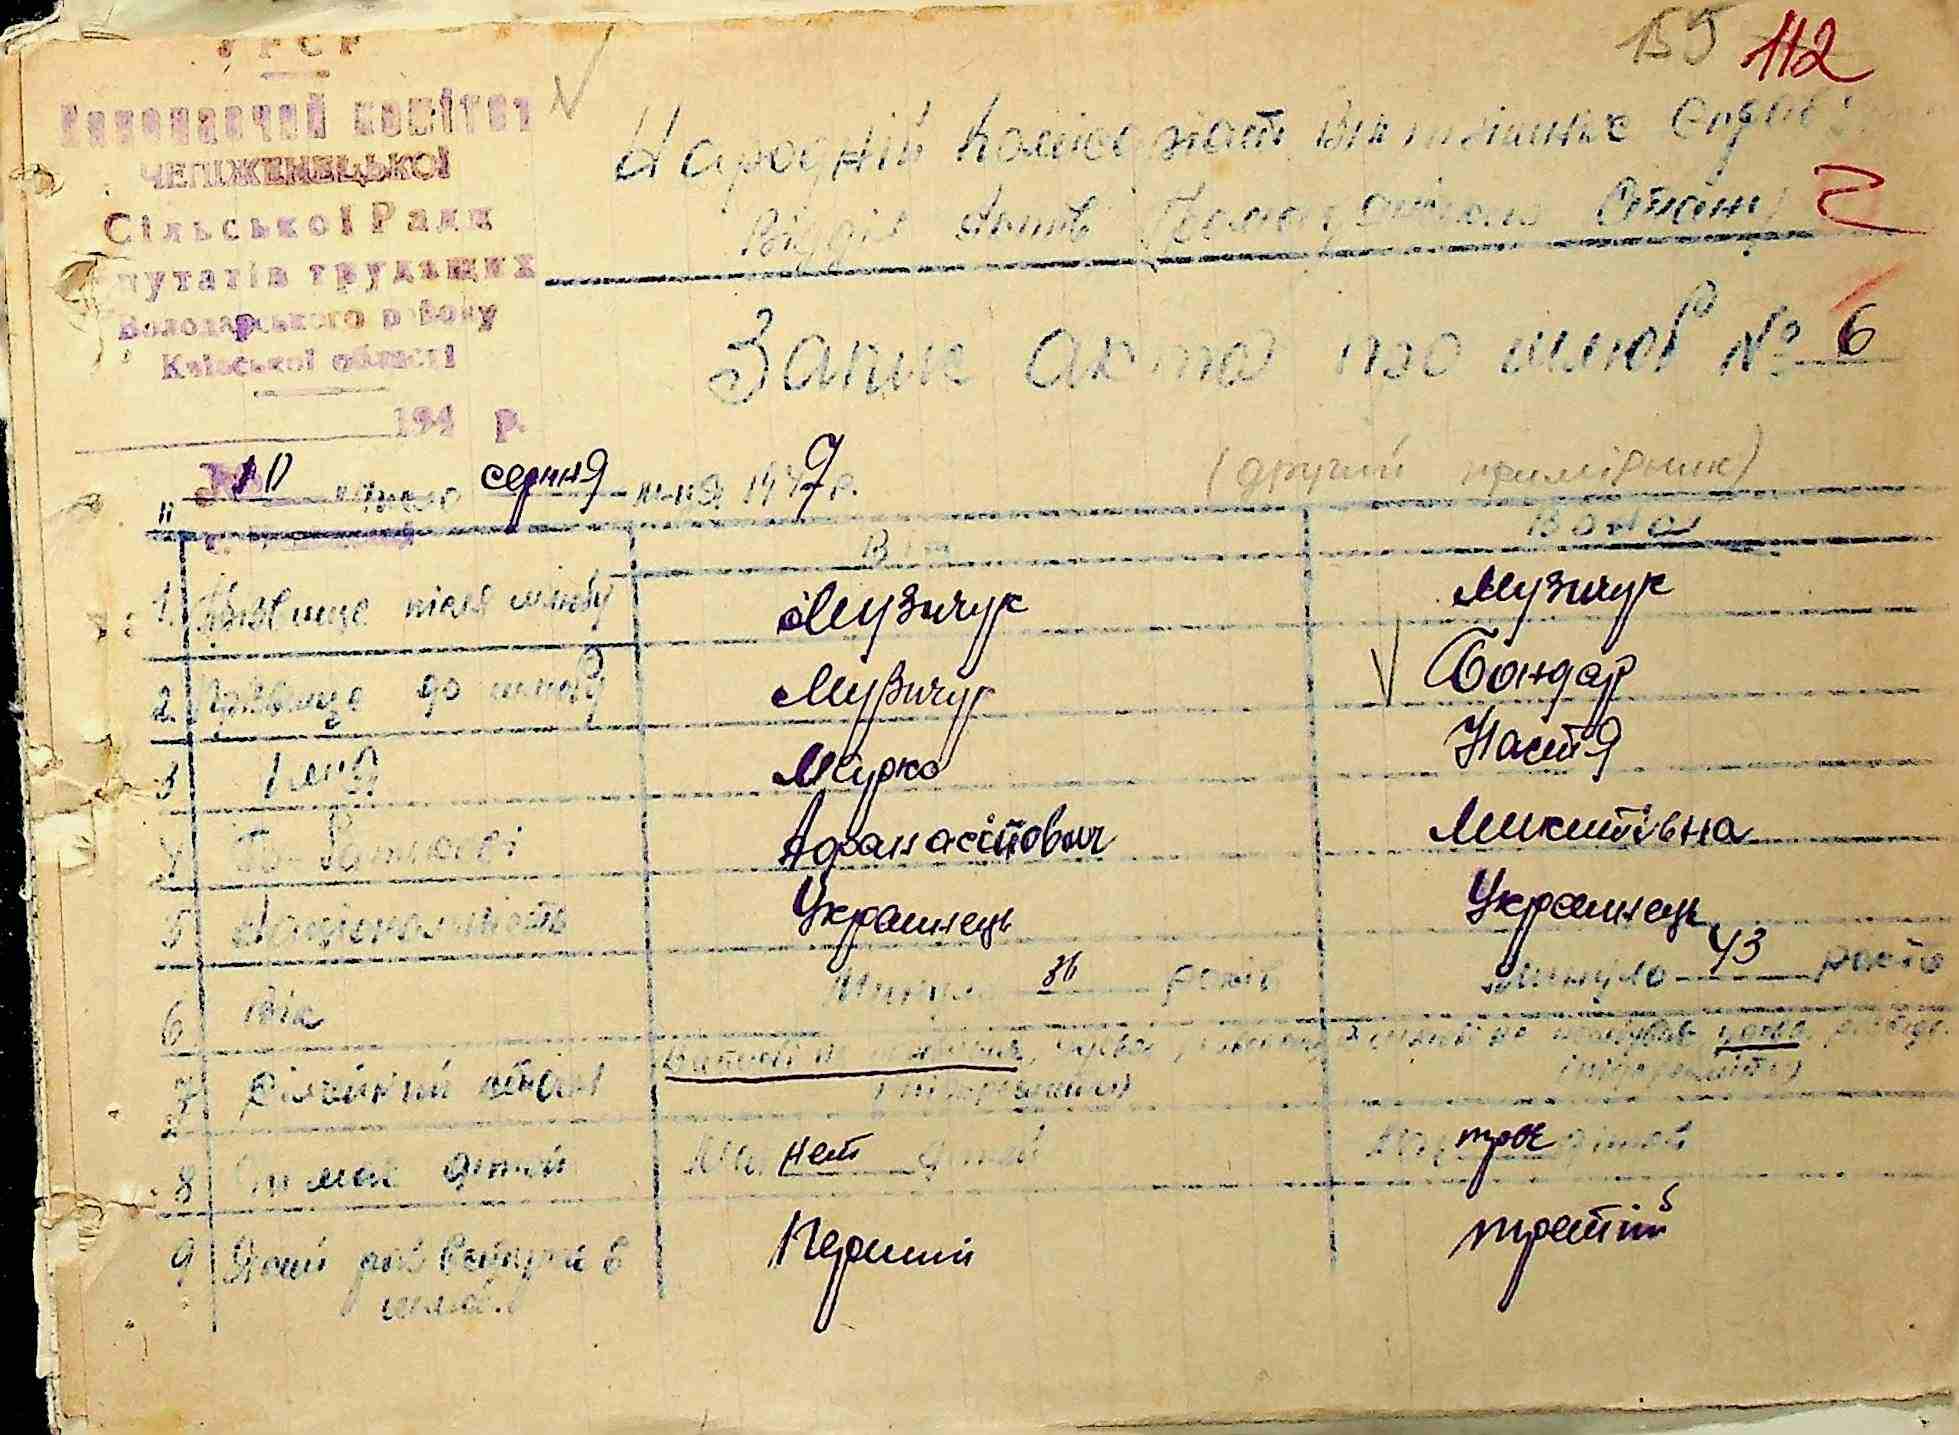 УРСР
Виконавчий комітет
Сільської Ради
депутатів трудящих
Володарського району
Київської області
194 р.
ВЅ 112
Народній Комісаріат Внутрішніх Справ
Відділ Актів Громадянського Стану
Запис акта про шлюб № 6
10 число серпня м-ця 1947 р.
(другий примірник)
Він Вона
1. Прізвище після шлюбу Музичук Музичук
2. Прізвище до шлюбу Музичук Бондар
3 Імя Марко Настя
4 По батькові Афанасійович Микитівна
5 Національність Украинець Украинець
6 Вік Минуло 36 років минуло 43 років
7 Сімейний стан в шлюбі не
(підкреслити) (підкреслити)
8 Чи має дітей Має нет дітей Має трое дітей
9 Який раз вступає в Перший третій
шлюб